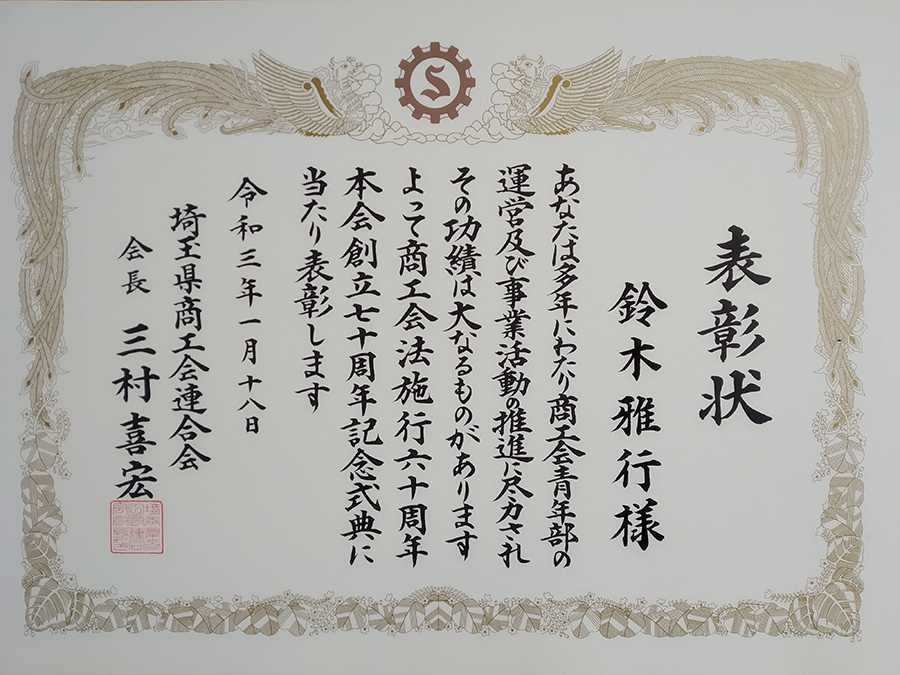 S
表彰状
鈴木雅行様
あなたは多年にわたり商工会青年部の
運営及び事業活動の推進に尽力され
その功績は大なるものがあります
よって商工会法施行六十周年
本会創立七十周年記念式典に
当たり表彰します
令和三年一月十八日
埼玉県商工会連合会
会長 三村喜宏